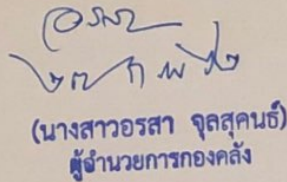 อรสา
(นางสาวอรสา จุลสุคนธ์)
ผู้อำนวยการกองคลัง